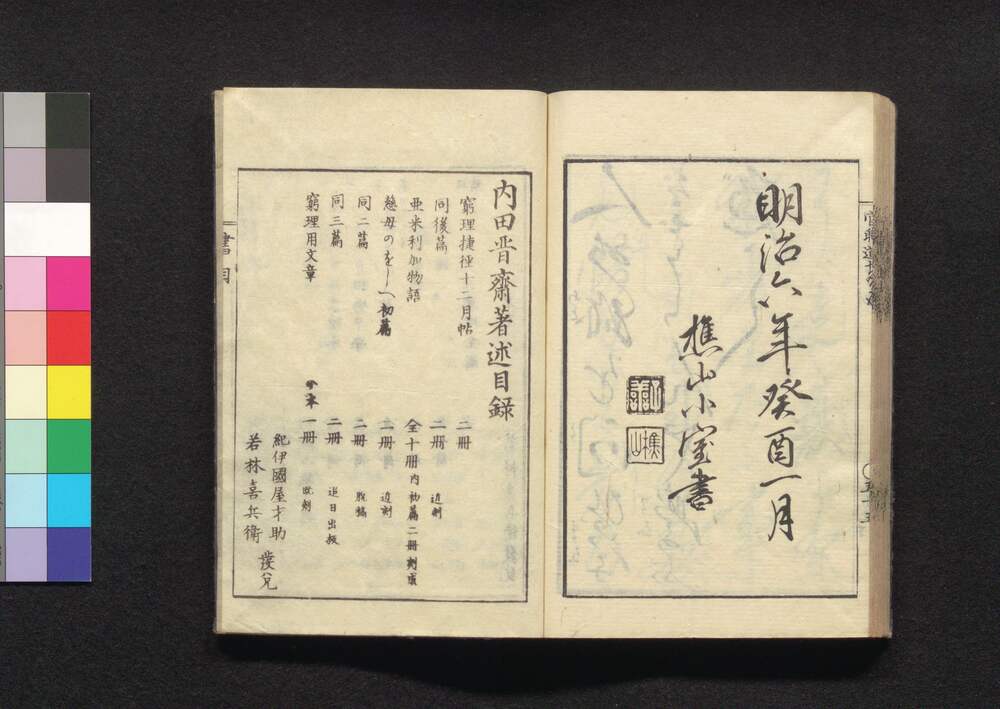 明治六年癸酉一月
樵山小室書
樵山
内田晋齋著述目録
窮理捷徑十二月帖 二冊
同後篇 二冊 近刻
亜米利加物語 全十冊 内初篇二冊刻成
慈母のをしへ 初篇 一冊 近刻
同二篇 二冊 脱稿
同三篇 二冊 近日出板
窮理用文章 一冊 既刻
紀伊國屋才助
若林喜兵衛
發兌
書目